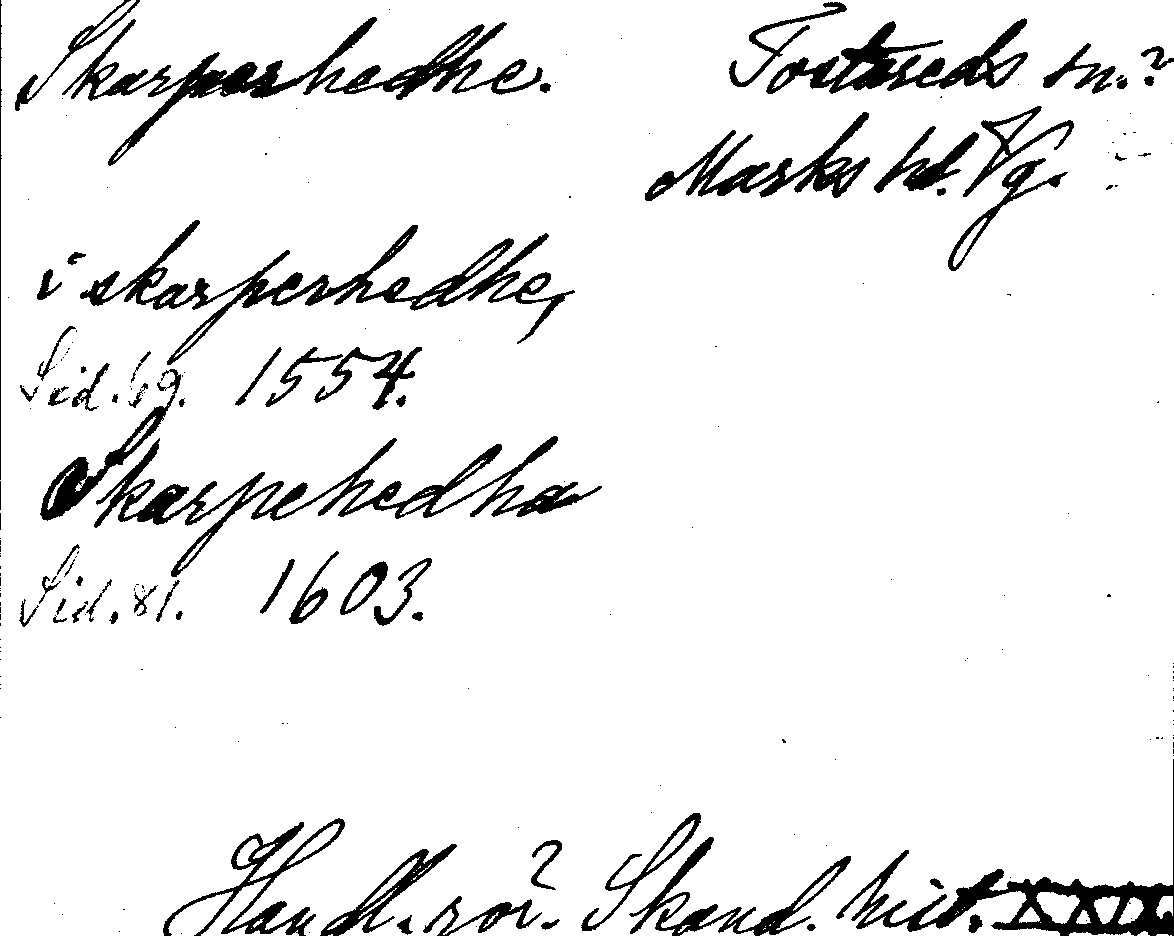 Skarperhedhe. Tostareds sn.?
Marks hd. Vg.
i skarperhedhe,
Sid. 69. 1554.
Skarpehedha
Sid. 81. 1603.
Handl. rör. Skand. hist. XXIX.